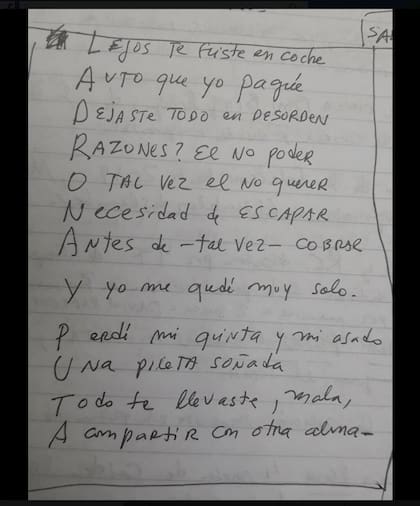 SA
LEJOS TE fuiste en coche
AUTO que yo pagué
DEJASTE TODO en DESORDEN
RAZONES? El NO poder
O TAL VEZ el NO querer
Necesidad de ESCAPAR
ANtes de -tal vez- COBRAR
Y yo me quedé muy solo.
Perdí mi quinta y mi asado
UNA PILETA SOÑADA
Todo te llevaste, mala,
A compartir con otra alma-